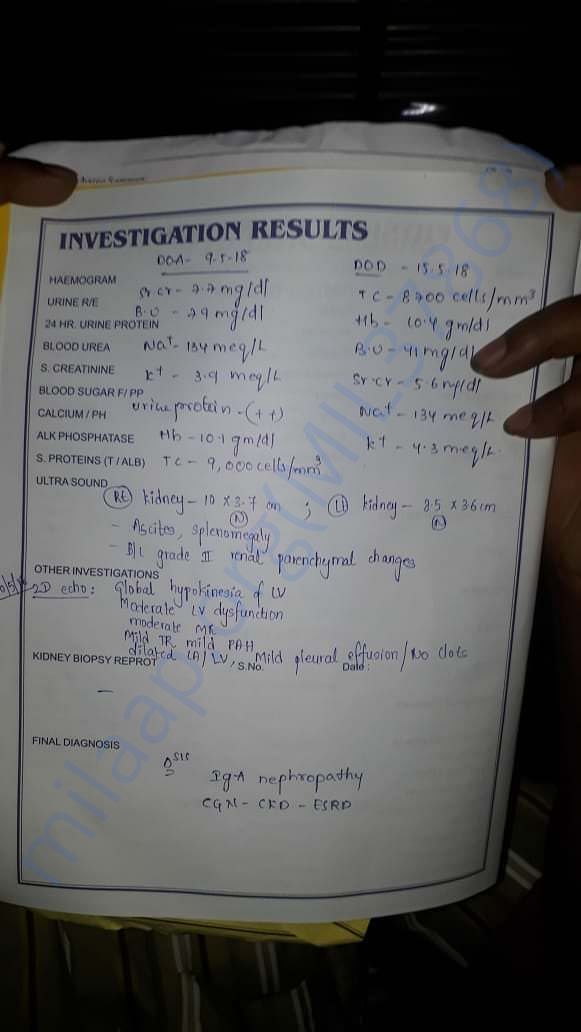 INVESTIGATION RESULTS
DOA- 9-5-18
DOD - 15.5.18
HAEMOGRAM
Sr cr - 7.7 mg/dl
TC - 8700 cells/mm3
URINE R/E
B.U - 79 mg/dl
Hb - 10.4 gm/dl
24 HR. URINE PROTEIN
BLOOD UREA
Na+ - 134 meq/L
B.U - 41 mg/dl
S. CREATININE
K+ - 3.9 meq/L
Sr.cr - 5.6 mg/dl
BLOOD SUGAR F/ PP
CALCIUM / PH
urine protein - (++)
Na+ - 134 meq/L
ALK PHOSPHATASE
Hb - 10.1 gm/dl
K+ - 4.3 meq/L.
S. PROTEINS (T / ALB)
TC - 9,000 cells/mm3
ULTRA SOUND
Rt kidney - 10 x 3.7 cm ; Lt kidney - 8.5 x 3.6 cm
N N
- Ascites, splenomegaly
- B/L grade II renal parenchymal changes
OTHER INVESTIGATIONS
2D echo : Global hypokinesia of LV
Moderate LV dysfunction
moderate MR
Mild TR mild PAH
dilated LA/LV, Mild pleural effusion/No clots
KIDNEY BIOPSY REPROT
S.No.
Date :
-
FINAL DIAGNOSIS
Ig-A nephropathy
CGN - CKD - ESRD